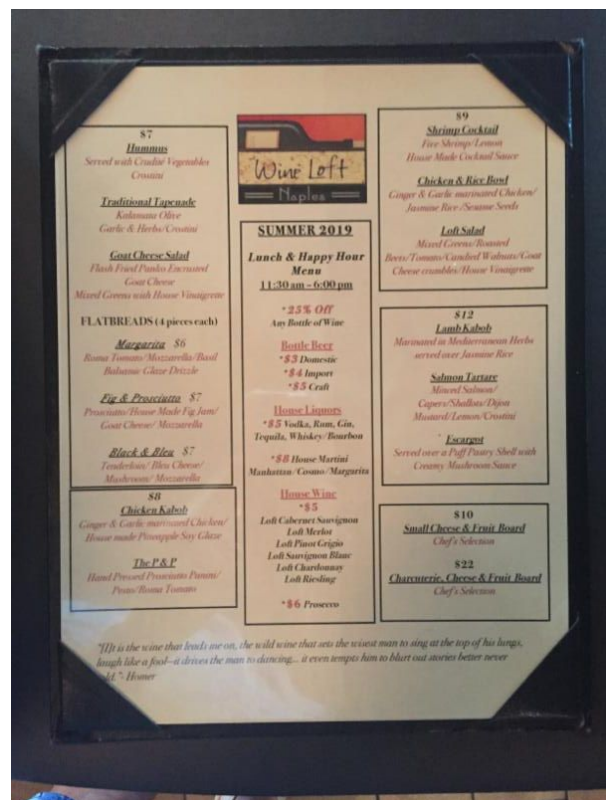 $7
Hummus
Served with Crudité Vegetables
Crostini
Traditional Tapenade
Kalamata Olive
Garlic & Herbs/Crostini
Goat Cheese Salad
Flash Fried Panko Encrusted
Goat Cheese
Mixed Greens with House Vinaigrette
FLATBREADS (4 pieces each)
Margarita $6
Roma Tomato/Mozzarella/Basil
Balsamic Glaze Drizzle
Fig & Prosciutto $7
Prosciutto/House Made Fig Jam/
Goat Cheese/Mozzarella
Black & Bleu $7
Tenderloin/Bleu Cheese/
Mushroom/Mozzarella
$8
Chicken Kabob
Ginger & Garlic marinated Chicken/
House made Pineapple Soy Glaze
The P & P
Hand Pressed Prosciutto Panini/
Pesto/Roma Tomato
Wine Loft
Naples
SUMMER 2019
Lunch & Happy Hour
Menu
11:30 am – 6:00 pm
*25% Off
Any Bottle of Wine
Bottle Beer
*$3 Domestic
*$4 Import
*$5 Craft
House Liquors
*$5 Vodka, Rum, Gin,
Tequila, Whiskey/Bourbon
*$8 House Martini
Manhattan/Cosmo/Margarita
House Wine
*$5
Loft Cabernet Sauvignon
Loft Merlot
Loft Pinot Grigio
Loft Sauvignon Blanc
Loft Chardonnay
Loft Riesling
*$6 Prosecco
$9
Shrimp Cocktail
Five Shrimp/Lemon
House Made Cocktail Sauce
Chicken & Rice Bowl
Ginger & Garlic marinated Chicken/
Jasmine Rice/Sesame Seeds
Loft Salad
Mixed Greens/Roasted
Beets/Tomato/Candied Walnuts/Goat
Cheese crumbles/House Vinaigrette
$12
Lamb Kabob
Marinated in Mediterranean Herbs
served over Jasmine Rice
Salmon Tartare
Minced Salmon/
Capers/Shallots/Dijon
Mustard/Lemon/Crostini
Escargot
Served over a Puff Pastry Shell with
Creamy Mushroom Sauce
$10
Small Cheese & Fruit Board
Chef's Selection
$22
Charcuterie, Cheese & Fruit Board
Chef's Selection
"[I]t is the wine that leads me on, the wild wine that sets the wisest man to sing at the top of his lungs,
laugh like a fool–it drives the man to dancing... it even tempts him to blurt out stories better never
told."- Homer